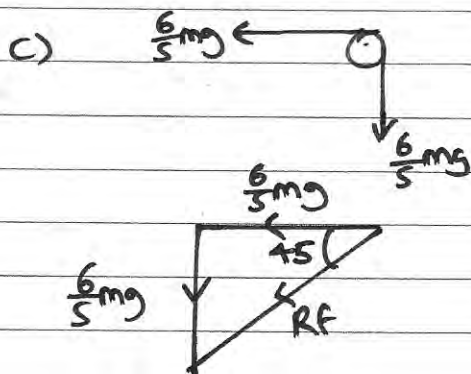 c) 6/5 mg
6/5 mg
6/5 mg
45
6/5 mg
RF